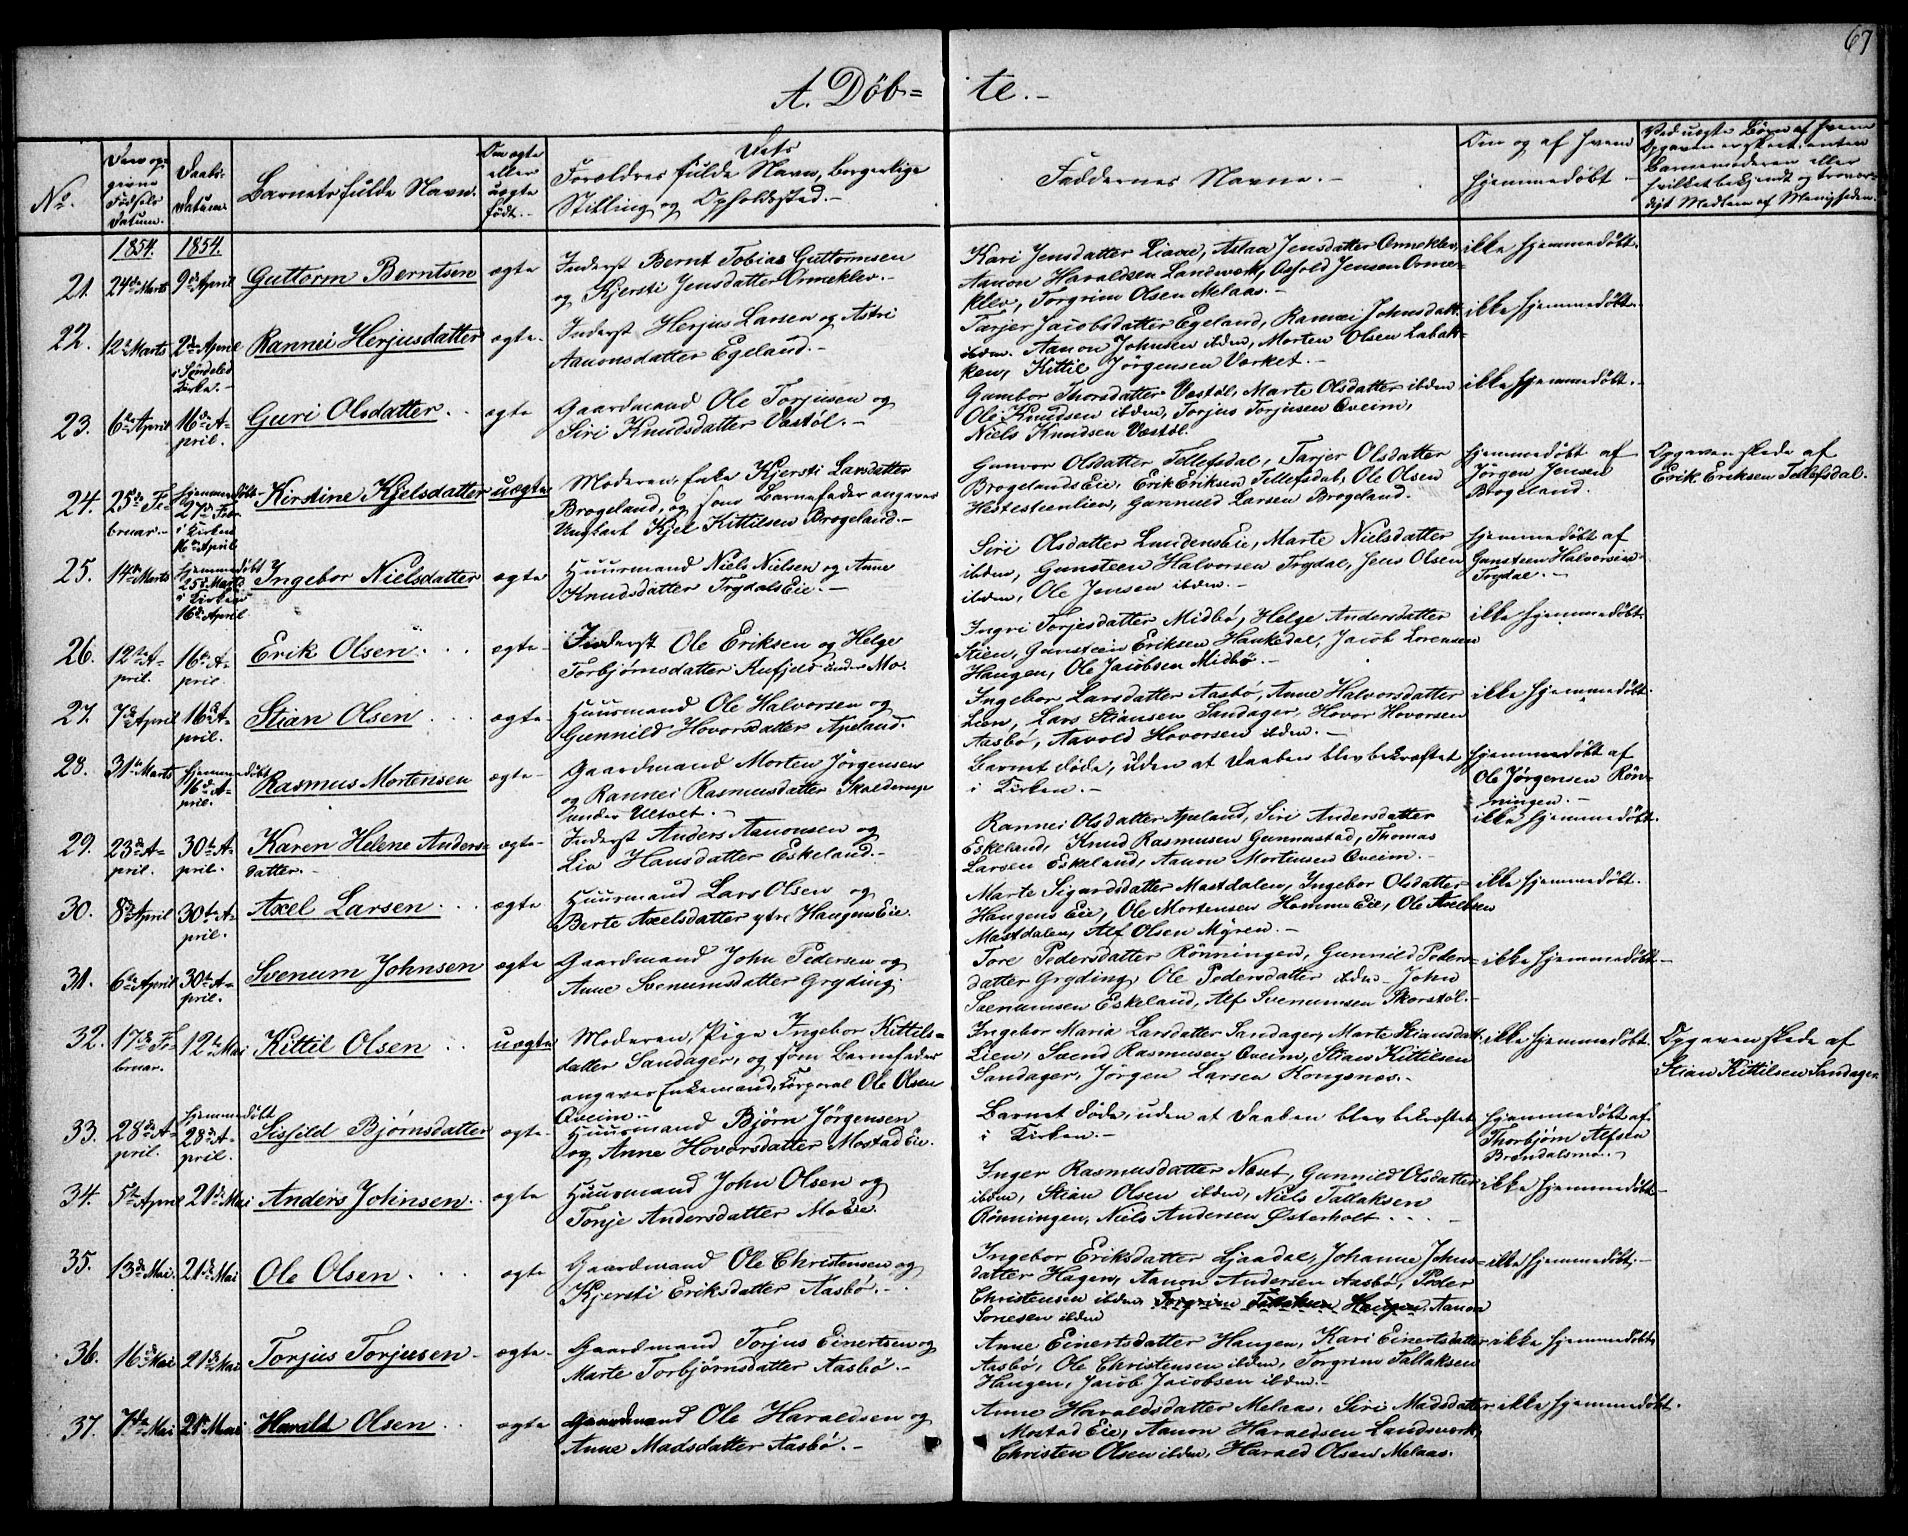 67
A. Döb= te.-
No.
Den op=
givne
Födsels
Datum.
Daabs=
Datum.
Barnets fulde Navn.
Om ægte
eller
uægte
födt.
Dets
Forældres fulde Navn, borgerlige
Stilling og Opholdssted.-
Faddernes Navne.-
Om og af hvem
hjemmedöbt
Ved uægte Börn af hvem
Opgaven er skeet: enten
Barnemoderen eller
hvilket bekjendt og trovær=
digt Medlem af Menigheden.
1854.
1854.
21.
24de Marts
9de April
Guttorm Berntsen
ægte
Inderst Bernt Tobias Guttormsen
og Kjersti Jensdatter Ormeklev.-
Kari Jensdatter Liane, Aslau Jensdatter Ormeklev,
Aanon Haraldsen Landsverk, Osfold Jensen Orme=
klev, Torgrim Olsen Melaas.-
ikke hjemmedöbt.
22.
12te Marts
2den April
i Söndeled
Kirke.-
Rannei Herjusdatter
ægte.
Inderst Herjus Larsen og Astri
Aanonsdatter Egeland.-
Tarjer Jacobsdatter Egeland, Rannei Johnsdatt.
ibdm. Aanon Johnsen ibdm, Morten Olsen Labak=
ken, Kittil Jörgensen Værket.-
ikke hjemmedöbt.
23.
6te April
16de A=
pril.
Guri Olsdatter.
ægte
Gaardmand Ole Torjusen og
Siri Knudsdatter Vestöl.-
Gumbor Thorsdatter Vestöl, Marte Olsdatter ibdm
Ole Knudsen ibdm, Torjus Torjusen Oveim,
Niels Knudsen Vestöl.
ikke hjemmedöbt.
24.
25de Fe=
bruar.-
hjemmedöbt
27de Febr.
i Kirken
16de April
Kirstine Kjelsdatter
uægte
Moderen, Enke Kjersti Larsdatter
Brogeland, og som Barnefader angives
Ungkarl Kjel Kittilsen Brogeland.-
Gunvor Olsdatter Tellefsdal, Tarjer Olsdatter
BrogelandsEie, Erik Eriksen Tellefsdal, Ole Olsen
Hestesteenlien, Gunnuld Larsen Brogeland.
hjemmedöbt af
Jörgen Jensen
Brogeland.
Opgaven skede af
Erik Eriksen Tellefsdal.
25.
14de Marts
hjemmedöbt
25de Marts
i Kirken
16de April
Ingebor Nielsdatter
ægte
Huusmand Niels Nielsen og Anne
Knudsdatter TrydalsEie.-
Siri Olsdatter LundensEie, Marte Nielsdatter
ibdm, Gunsteen Halvorsen Trydal, Jens Olsen
ibdm, Ole Jensen ibdm.-
hjemmedöbt af
Gunsteen Halvorsen
Trydal.-
26.
12te A=
pril.
16de A=
pril.
Erik Olsen.
ægte
Inderst Ole Eriksen og Helge
Torbjörnsdatter Aufjeld under Mo.
Ingri Torjesdatter Midbö, Helge Andersdatter
Stien, Gunsteen Eriksen Haukedal, Jacob Lorensen
Haugen, Ole Jacobsen Midbö.-
ikke hjemmedöbt.
27.
7de April
16de A=
pril.
Stian Olsen
ægte
Huusmand Ole Halvorsen og
Gunnild Hovorsdatter Apeland.
Ingebor Larsdatter Aasbö, Anne Halvorsdatter
Lien, Lars Stiansen Sandager, Hovor Hovorsen
Aasbö, Aavold Hovorsen ibdm.-
ikke hjemmedöbt.
28.
31te Marts
hjemmedöbt
16de A=
pril.
Rasmus Mortensen
ægte
Gaardmand Morten Jörgensen
og Rannei Rasmusdatter
under Ulholt.-
Barnet döde, uden at Daaben blev bekræftet
i Kirken.-
hjemmedöbt af
Ole Jörgensen Rön=
ningen.-
29.
23de A=
pril.
30te A=
pril.
Karen Helene Anders=
datter.-
ægte
Inderst Anders Aanonsen og
Liv Hansdatter Eskeland.-
Rannei Olsdatter Apeland, Siri Andersdatter
Eskeland, Knud Rasmusen Gunnestad, Thomas
Larsen Eskeland, Aanon Mortensen Oveim.-
ikke hjemmedöbt.
30.
8de April
30te A=
pril.
Axel Larsen.
ægte
Huusmand Lars Olsen og
Berte Axelsdatter ytre HaugensEie.
Marte Sigurdsdatter Mastdalen, Ingebor Olsdatter
Haugens Eie, Ole Mortensen Homme Eie, Ole Axelsen
Mastdalen, Alf Olsen Myren.-
ikke hjemmedöbt.
31.
6te April
30te A=
pril.
Svenum Johnsen
ægte
Gaardmand John Pedersen og
Anne Svenumsdatter Gryding.
Tore Pedersdatter Rönningen, Gunnild Peders=
datter Gryding, Ole Pedersdatter ibdm. John
Svenumsen Eskeland, Alf Svenumsen Skorstöl.-
ikke hjemmedöbt.-
32.
17de Fe=
bruar.
12te Mai
Kittil Olsen
uægte
Moderen, Pige Ingebor Kittils=
datter Sandager, og som Barnefader
angives Enkemand, Korporal Ole Olsen
Oveim.-
Ingebor Maria Larsdatter Sandager, Marte Stiansdatt.
Lien, Svend Rasmusen Oveim, Stian Kittilsen
Sandager, Jörgen Larsen Kongsnæs.-
ikke hjemmedöbt.
Opgaven skede af
Stian Kittilsen Sandager
33.
28de A=
pril.
hjemmedöbt
28de A=
pril.
Sisfild Bjørnsdatter
ægte
Huusmand Bjørn Jörgensen
og Anne Hovorsdatter Mostad Eie.
Barnet döde, uden at Daaben blev bekræftet
i Kirken.-
hjemmedöbt af
Thorbjørn Alfsen
Brændalsmo.-
34.
5te April
21de Mai
Anders Johnsen.
ægte
Huusmand John Olsen og
Tonje Andersdatter MoEie.
Inger Rasmusdatter Næset, Gunnild Olsdatter
ibdm, Stian Olsen ibdm, Niels Tallaksen
Rönningen, Niels Andersen Østerholt.
ikke hjemmedöbt.-
35.
13de Mai.
21de Mai
Ole Olsen.
ægte
Gaardmand Ole Christensen og
Kjersti Eriksdatter Aasbö.-
Ingebor Eriksdatter Ljaadal, Johanne Johns=
datter Hagen, Aanon Andersen Aasbö, Peder
Christensen ibdm. Torgrim Tallaksen Haugen. Aanon
Sonesen ibdm
ikke hjemmedöbt.-
36.
16de Mai
21de Mai
Torjus Torjusen
ægte
Gaardmand Torjus Einertsen og
Marte Torbjørnsdatter Aasbö.-
Anne Einertsdatter Haugen, Kari Einertsdatter
Aasbö, Ole Christensen ibdm, Torgrim Tallaksen
Haugen, Jacob Jacobsen ibdm.-
ikke hjemmedöbt
37.
7de Mai
21de Mai
Harald Olsen.
ægte
Gaardmand Ole Haraldsen og
Anne Madsdatter Aasbö.-
Anne Haraldsdatter Melaas, Siri Madsdatter
Mostad Eie, Aanon Haraldsen Landsverk,
Christen Olsen ibdm, Harald Olsen Melaas.
ikke hjemmedöbt.